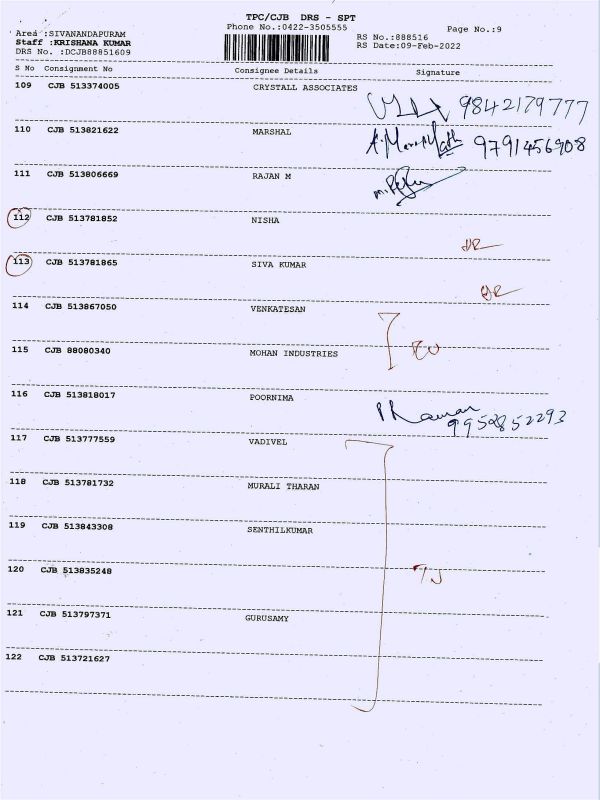 TPC/CJB DRS - SPT
Phone No.:0422-3505555
Page No.:9
Area :SIVANANDAPURAM
Staff :KRISHANA KUMAR
DRS No. :DCJB88851609
RS No.:888516
RS Date:09-Feb-2022
S No Consignment No Consignee Details Signature
109 CJB 513374005 CRYSTALL ASSOCIATES
9842179777
110 CJB 513821622 MARSHAL
9791456908
111 CJB 513806669 RAJAN M
112 CJB 513781852 NISHA
113 CJB 513781865 SIVA KUMAR
114 CJB 513867050 VENKATESAN
115 CJB 88080340 MOHAN INDUSTRIES
116 CJB 513818017 POORNIMA
9952852293
117 CJB 513777559 VADIVEL
118 CJB 513781732 MURALI THARAN
119 CJB 513843308 SENTHILKUMAR
120 CJB 513835248
121 CJB 513797371 GURUSAMY
122 CJB 513721627